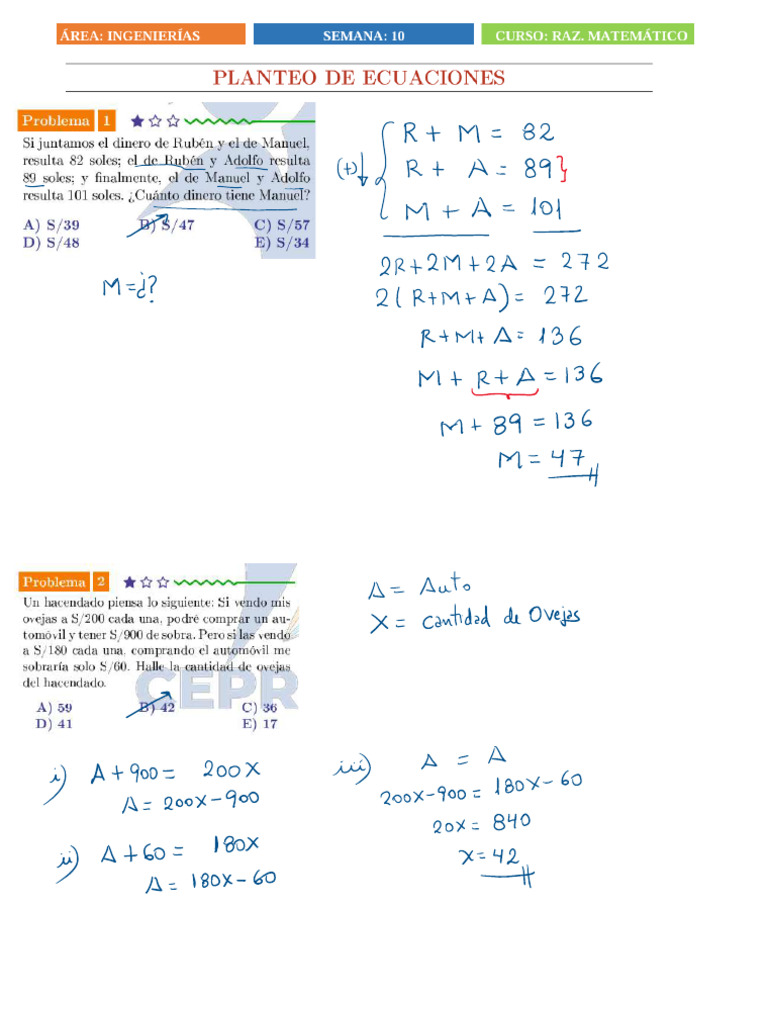 ÁREA: INGENIERÍAS
SEMANA: 10
CURSO: RAZ. MATEMÁTICO
PLANTEO DE ECUACIONES
Problema 1
Si juntamos el dinero de Rubén y el de Manuel,
resulta 82 soles; el de Rubén y Adolfo resulta
89 soles; y finalmente, el de Manuel y Adolfo
resulta 101 soles. ¿Cuánto dinero tiene Manuel?
A) S/39 B) S/47 C) S/57
D) S/48 E) S/34
M=¿?
R + M = 82
(+) R + A = 89}
M + A = 101
2R+2M+2A = 272
2(R+M+A) = 272
R+M+A = 136
M + R+A = 136
M + 89 = 136
M = 47
Problema 2
Un hacendado piensa lo siguiente: Si vendo mis
ovejas a S/200 cada una, podré comprar un au-
tomóvil y tener S/900 de sobra. Pero si las vendo
a S/180 cada una, comprando el automóvil me
sobraría solo S/60. Halle la cantidad de ovejas
del hacendado.
A) 59 B) 42 C) 36
D) 41 E) 17
CEPR
A = Auto
X = cantidad de Ovejas
i) A+900 = 200X
A = 200X-900
ii) A+60 = 180X
A = 180X-60
iii) A = A
200X-900 = 180X-60
20X = 840
X = 42